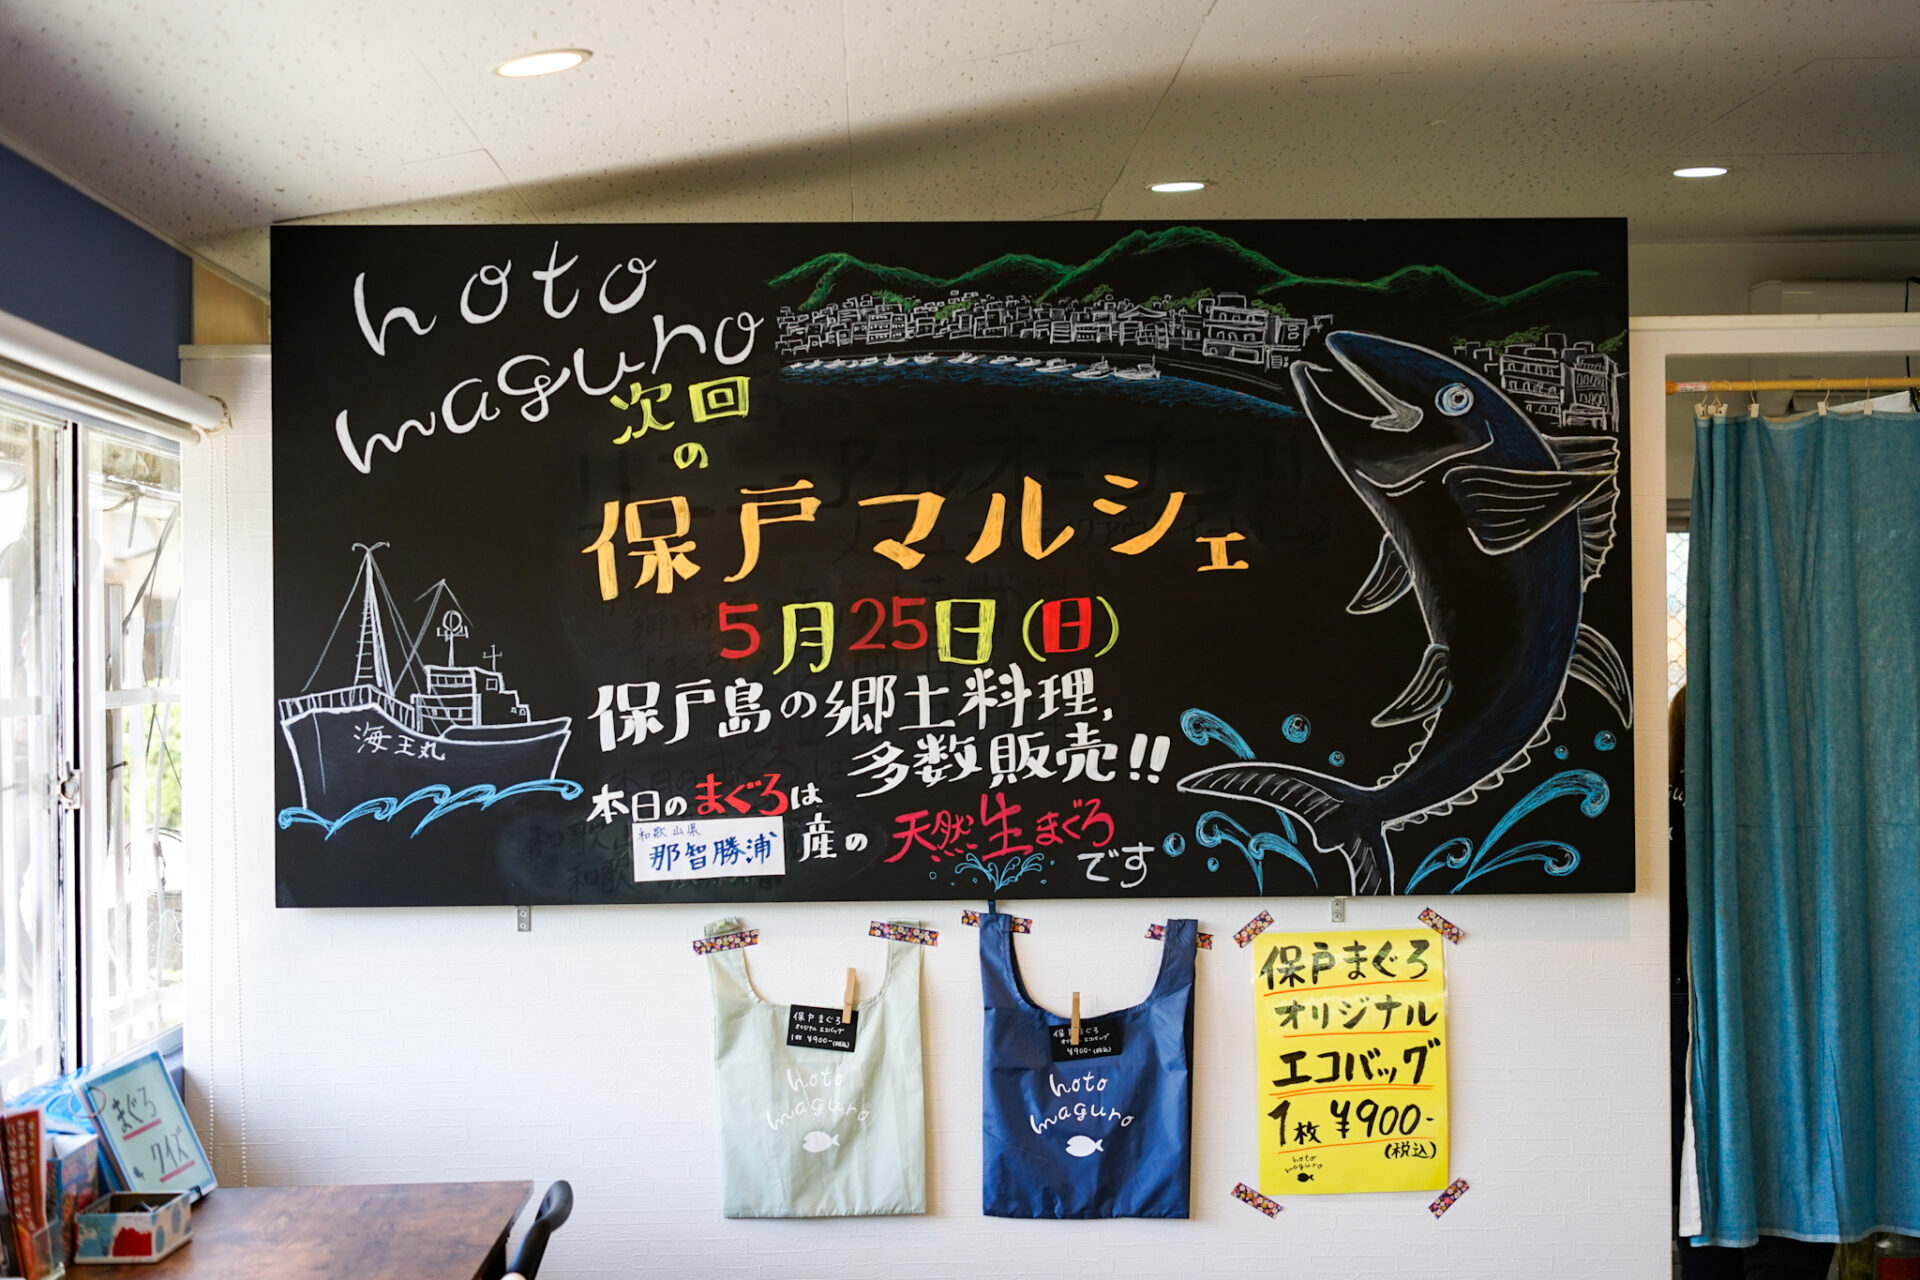 hoto
maguro
次回
の
保戸マルシェ
5月25日(日)
保戸島の郷土料理,
多数販売!!
海王丸
本日のまぐろは
和歌山県
那智勝浦
産の天然生まぐろ
です
保戸まぐろ
オリジナル エコバッグ
1枚 ¥900-(税込)
hoto
maguro
保戸まぐろ
オリジナル エコバッグ
¥900-(税込)
hoto
maguro
保戸まぐろ
オリジナル
エコバッグ
1枚 ¥900-
(税込)
hoto
maguro
まぐろ
クイズ